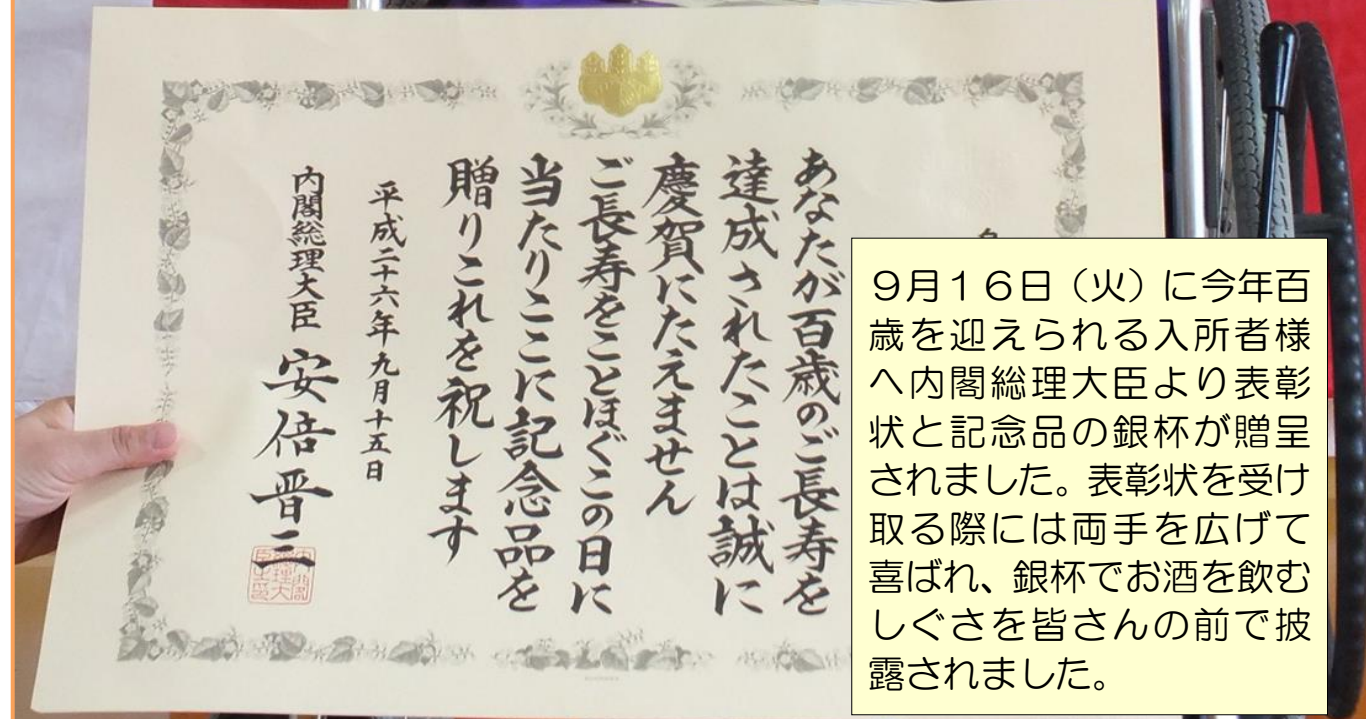 あなたが百歳のご長寿を
達成されたことは誠に
慶賀にたえません
ご長寿をことほぐこの日に
当たりここに記念品を
贈りこれを祝します
平成二十六年九月十五日
内閣総理大臣 安倍晋三
９月１６日（火）に今年百
歳を迎えられる入所者様
へ内閣総理大臣より表彰
状と記念品の銀杯が贈呈
されました。表彰状を受け
取る際には両手を広げて
喜ばれ、銀杯でお酒を飲む
しぐさを皆さんの前で披
露されました。